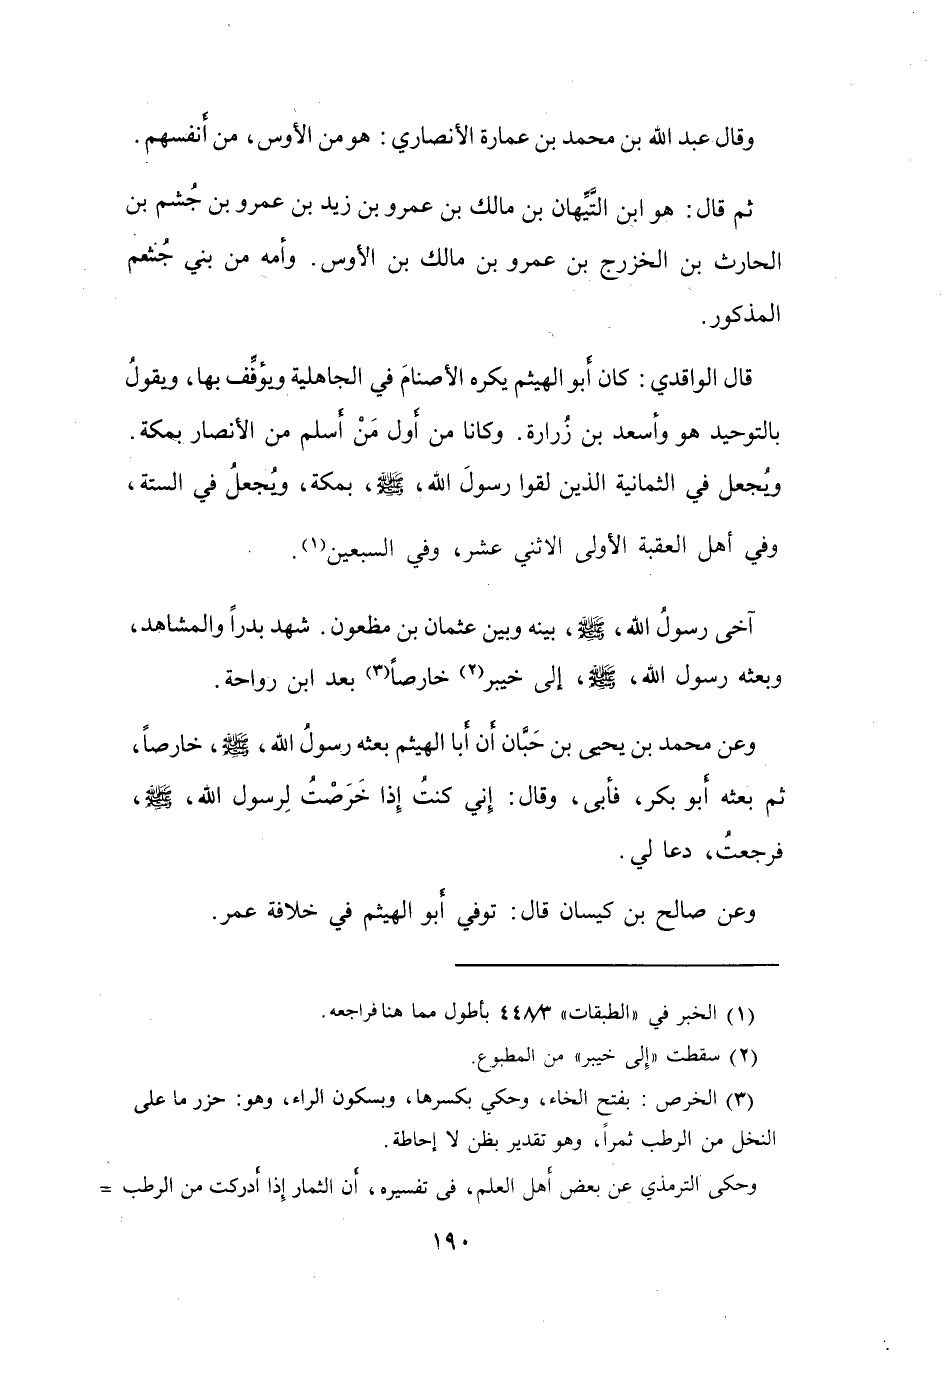 وقال عبد الله بن محمد بن عمارة الأنصاري : هو من الأوس، من أَنفسهم .
ثم قال: هو ابن التَّيِّهان بن مالك بن عمرو بن زيد بن عمرو بن جُشم بن
الحارث بن الخزرج بن عمرو بن مالك بن الأوس. وأمه من بني جُشعم
المذكور.
قال الواقدي : كان أَبو الهيثم يكره الأصنامَ في الجاهلية ويؤفِّف بها، ويقولُ
بالتوحيد هو وأسعد بن زُرارة. وكانا من أَول مَنْ أَسلم من الأنصار بمكة.
ويُجعل في الثمانية الذين لقوا رسولَ الله، ﷺ، بمكة، ويُجعلُ في الستة،
وفي أهل العقبة الأولى الاثني عشر، وفي السبعين(١).
آخى رسولُ الله، ﷺ، بينه وبين عثمان بن مظعون. شهد بدراً والمشاهد،
وبعثه رسول الله، ﷺ، إلى خيبر(٢) خارصاً(٣) بعد ابن رواحة.
وعن محمد بن يحيى بن حَبَّان أَن أَبا الهيثم بعثه رسولُ الله، ﷺ، خارصاً،
ثم بعثه أَبو بكر، فأبى، وقال: إِني كنتُ إِذا خَرَصْتُ لِرسول الله، ﷺ،
فرجعتُ، دعا لي.
وعن صالح بن كيسان قال: توفي أَبو الهيثم في خلافة عمر.
(١) الخبر في «الطبقات» ٤٤٨/٣ بأطول مما هنا فراجعه.
(٢) سقطت «إلى خيبر» من المطبوع.
(٣) الخرص : بفتح الخاء، وحكي بكسرها، وبسكون الراء، وهو: حزر ما على
النخل من الرطب ثمراً، وهو تقدير بظن لا إحاطة.
وحكى الترمذي عن بعض أَهل العلم، فى تفسيره، أَن الثمار إِذا أَدركت من الرطب =
١٩٠